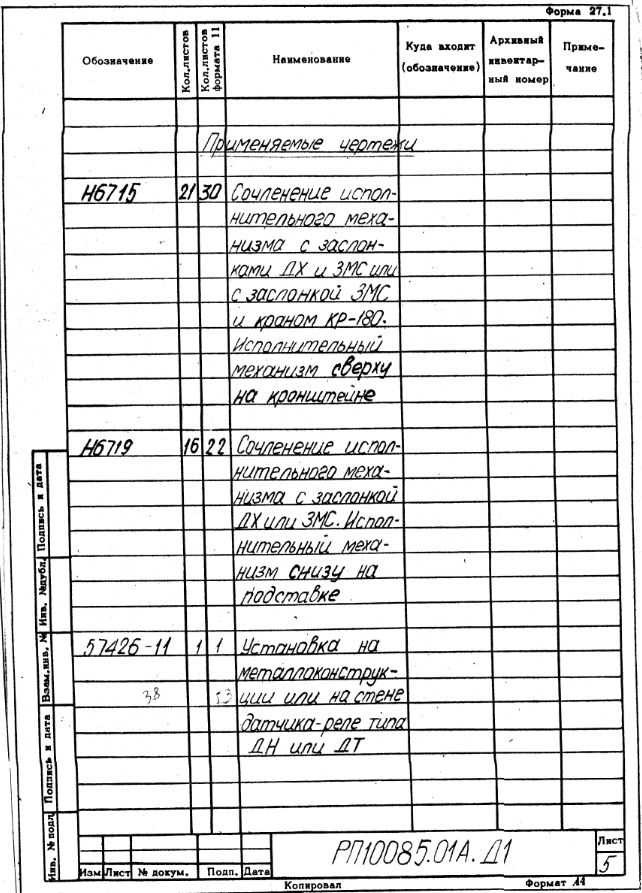 Форма 27.1
Обозначение
Кол.листов
Кол.листов
формата 11
Наименование
Куда входит
(обозначение)
Архивный
инвентар-
ный номер
Приме-
чание
Применяемые чертежи
Н6715 21 30 Сочленение испол-
нительного меха-
низма с заслон-
ками ДХ и ЗМС или
с заслонкой ЗМС
и краном КР-180.
Исполнительный
механизм сверху
на кронштейне
Н6719 16 22 Сочленение испол-
нительного меха-
низма с заслонкой
ДХ или ЗМС. Испол-
нительный меха-
низм снизу на
подставке
57426-11 1 1 Установка на
металлоконструк-
38 53 ции или на стене
датчика-реле типа
ДН или ДТ
Инв. № подл.
Подпись и дата
Взам.инв. №
Инв. №дубл.
Подпись и дата
Изм Лист № докум. Подп. Дата
РП10085.01А.Д1
Лист
5
Копировал
Формат 11